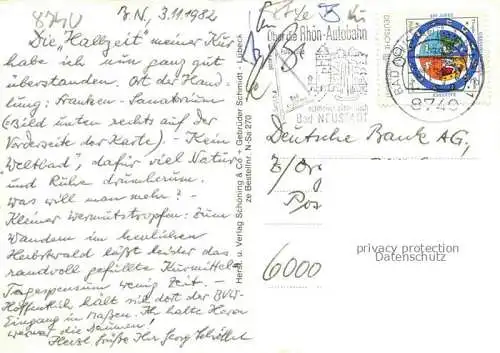 8740 B.N., 3.11.1982
Die „Halbzeit" meiner Kur
habe ich nun ganz gut
überstanden. Ort der Hand-
lung: Franken-Sanatorium
(Bild unten rechts auf der
Vorderseite der Karte). - Kein
„Weltbad", dafür viel Natur
und Ruhe drumherum.
Was will man mehr? -
Kleiner Wermutstropfen: zum
Wandern im herrlichen
Herbstwald läßt leider das
randvoll gefüllte Kurmittel-
Tagespensum wenig Zeit. -
Hoffentlich hält sich dort der
Eingang in Maßen. Ich halte Ihnen
die Daumen!
Herzl. Grüße Ihr Georg
Herst. u. Verlag Schöning & Co + Gebrüder Schmidt - Lübeck
ze Bestellnr. N-Sa 270
Über die Rhön-Autobahn
Bad NEUSTADT
8740
DEUTSCHE
Deutsche Bank AG,
z/
Pos
6000
privacy protection
Datenschutz